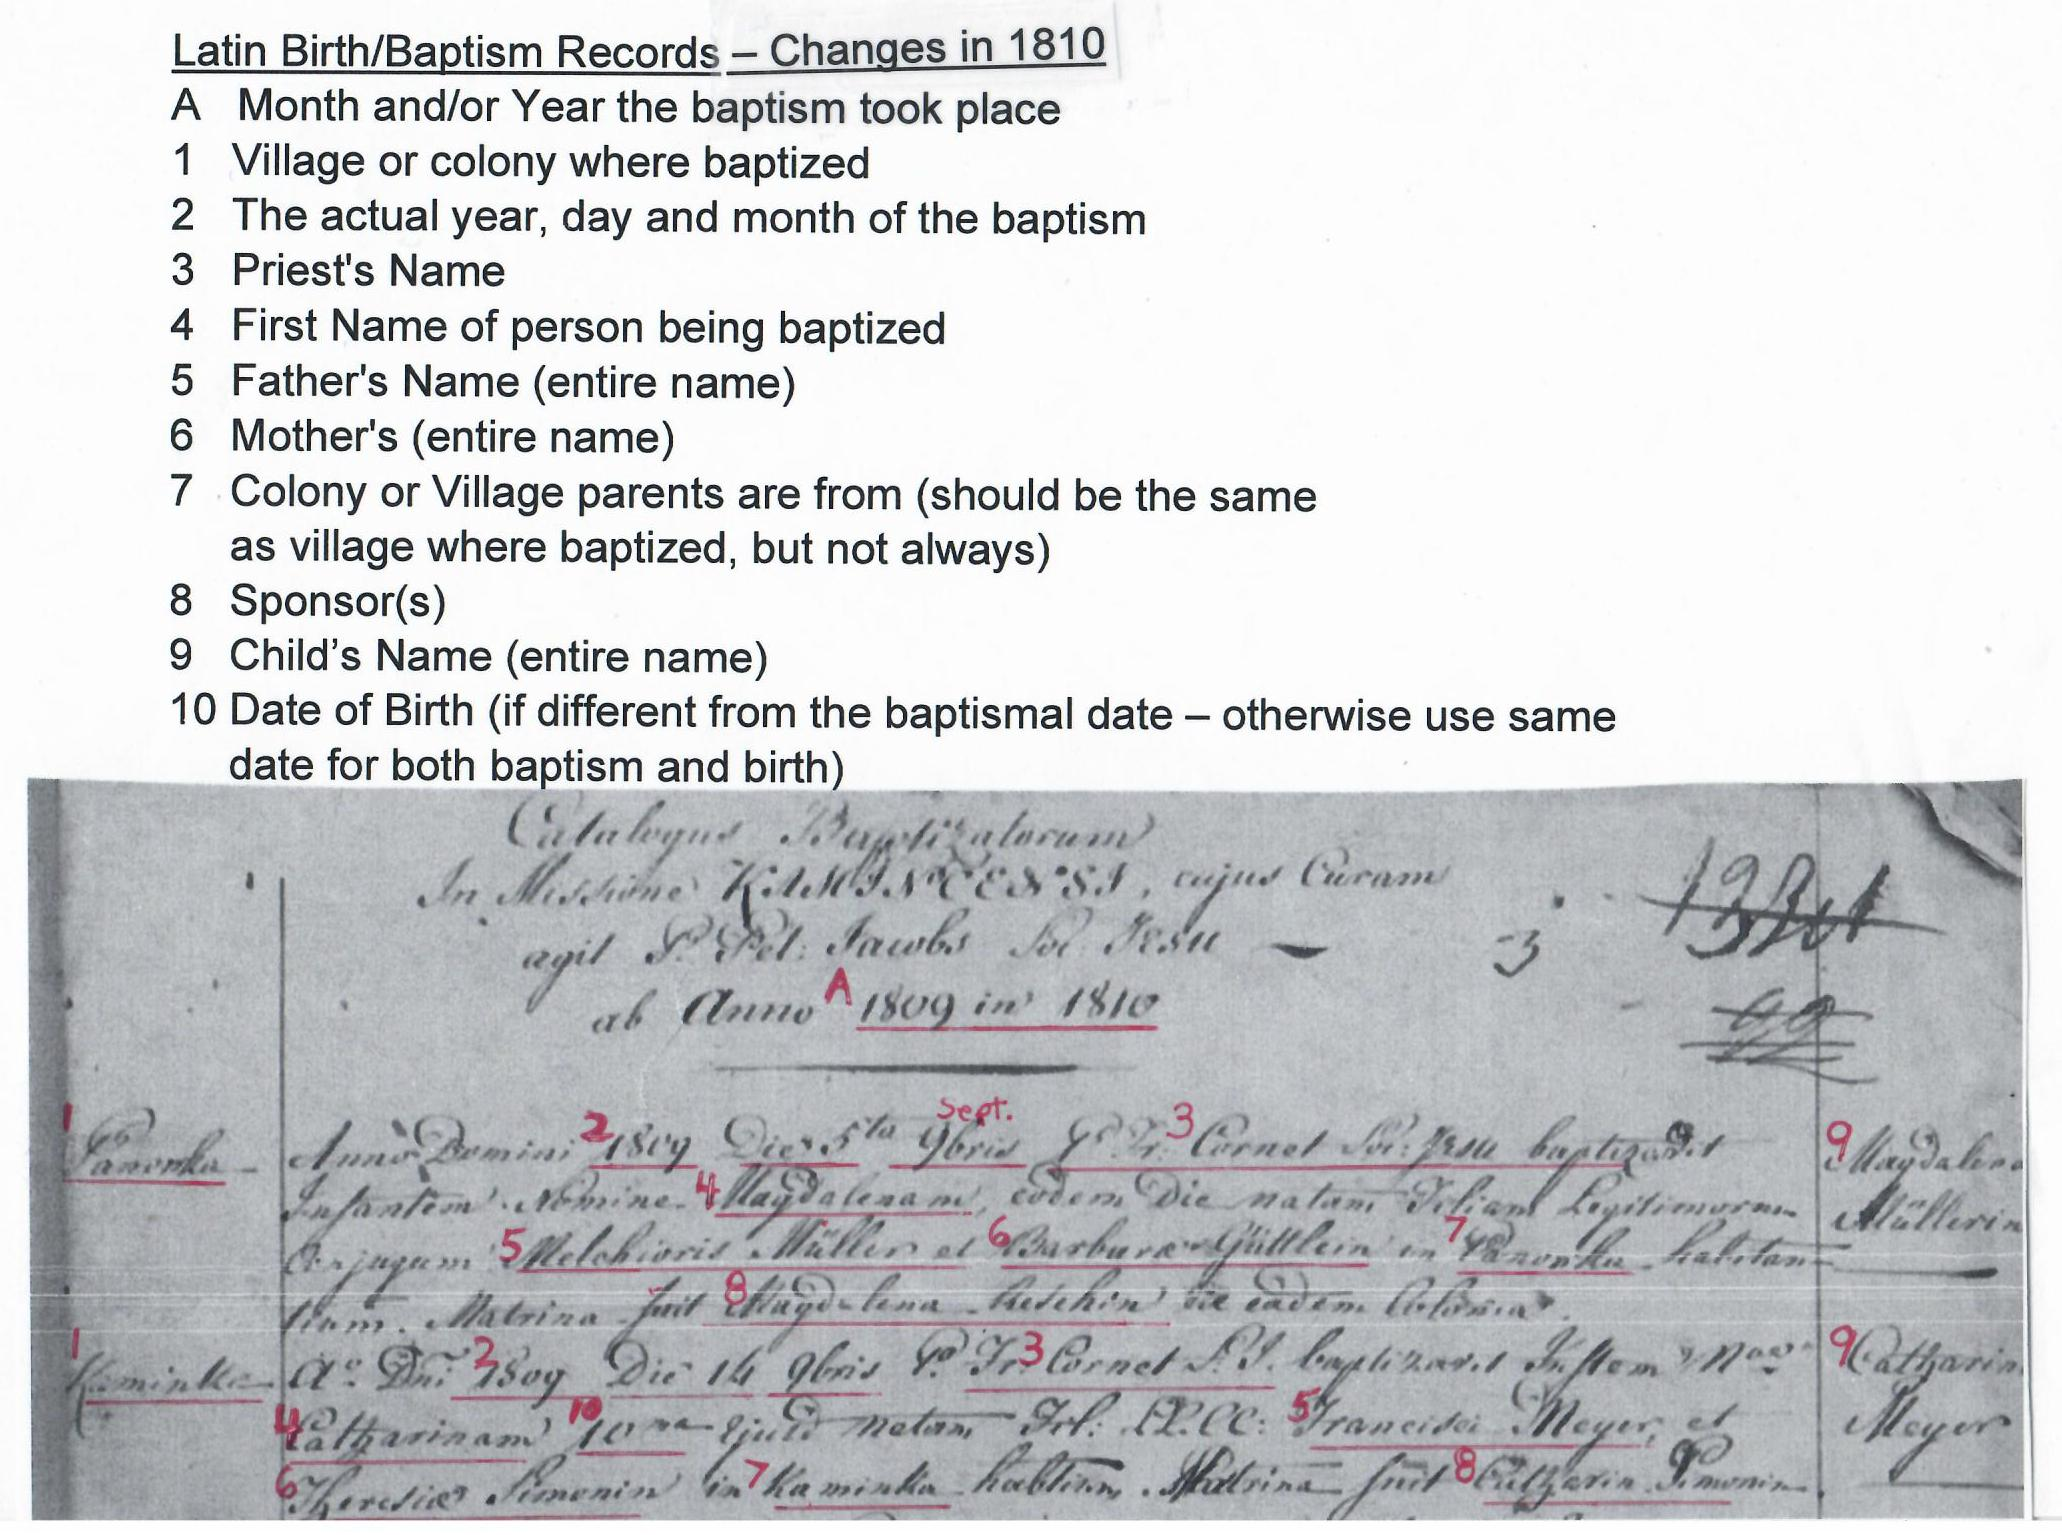 Latin Birth/Baptism Records – Changes in 1810
A Month and/or Year the baptism took place
1 Village or colony where baptized
2 The actual year, day and month of the baptism
3 Priest's Name
4 First Name of person being baptized
5 Father's Name (entire name)
6 Mother's (entire name)
7 Colony or Village parents are from (should be the same
as village where baptized, but not always)
8 Sponsor(s)
9 Child's Name (entire name)
10 Date of Birth (if different from the baptismal date – otherwise use same
date for both baptism and birth)
Catalogus Baptizatorum
In Missione KAMINCENSI, cujus Curam
agit P. Pet: Jacobs Soc: Jesu — 3
ab Anno A 1809 in 1810
99
Sept.
1 Panonka Anno Domini 2 1809 Die 5ta 9bris P. Fr: 3 Cornet Soc: Jesu baptizavit 9 Magdalena
Infantem Nomine 4 Magdalenam, eodem Die natam Filiam Legitimorum Müllerin
Conjugum 5 Melchioris Müller et 6 Barbaræ Güttlein in 7 Panonka habitan-
tium. Matrina fuit 8 Magdalena Keschin ex eadem Colonia.
1 Kaminka Ao Dni 2 1809 Die 14 9bris P. Fr: 3 Cornet S.J. baptizavit 9 Catharin
4 Catharinam 10 10ma natam Fil: LL.CC: 5 Francisci Meyer, et Meyer
6 Theresiæ Simonin in 7 Kaminka habtium. Matrina fuit 8 Catharin Simonin